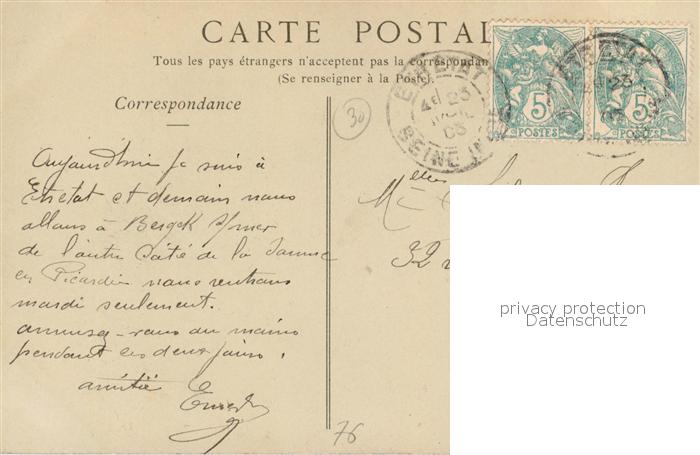 CARTE POSTALE
Tous les pays étrangers n'acceptent pas la correspondan
(Se renseigner à la Poste)
Correspondance
30
ETRETAT
23
05
SEINE INF
5
POSTES
5
POSTES
Aujourd'hui je suis à
Etretat et demain nous
allons à Berck s/mer
de l'autre côté de la Somme
en Picardie nous rentrons
mardi seulement.
amusez-vous au moins
pendant ces deux jours.
amitié
Ernest
Melles
32
76
privacy protection
Datenschutz